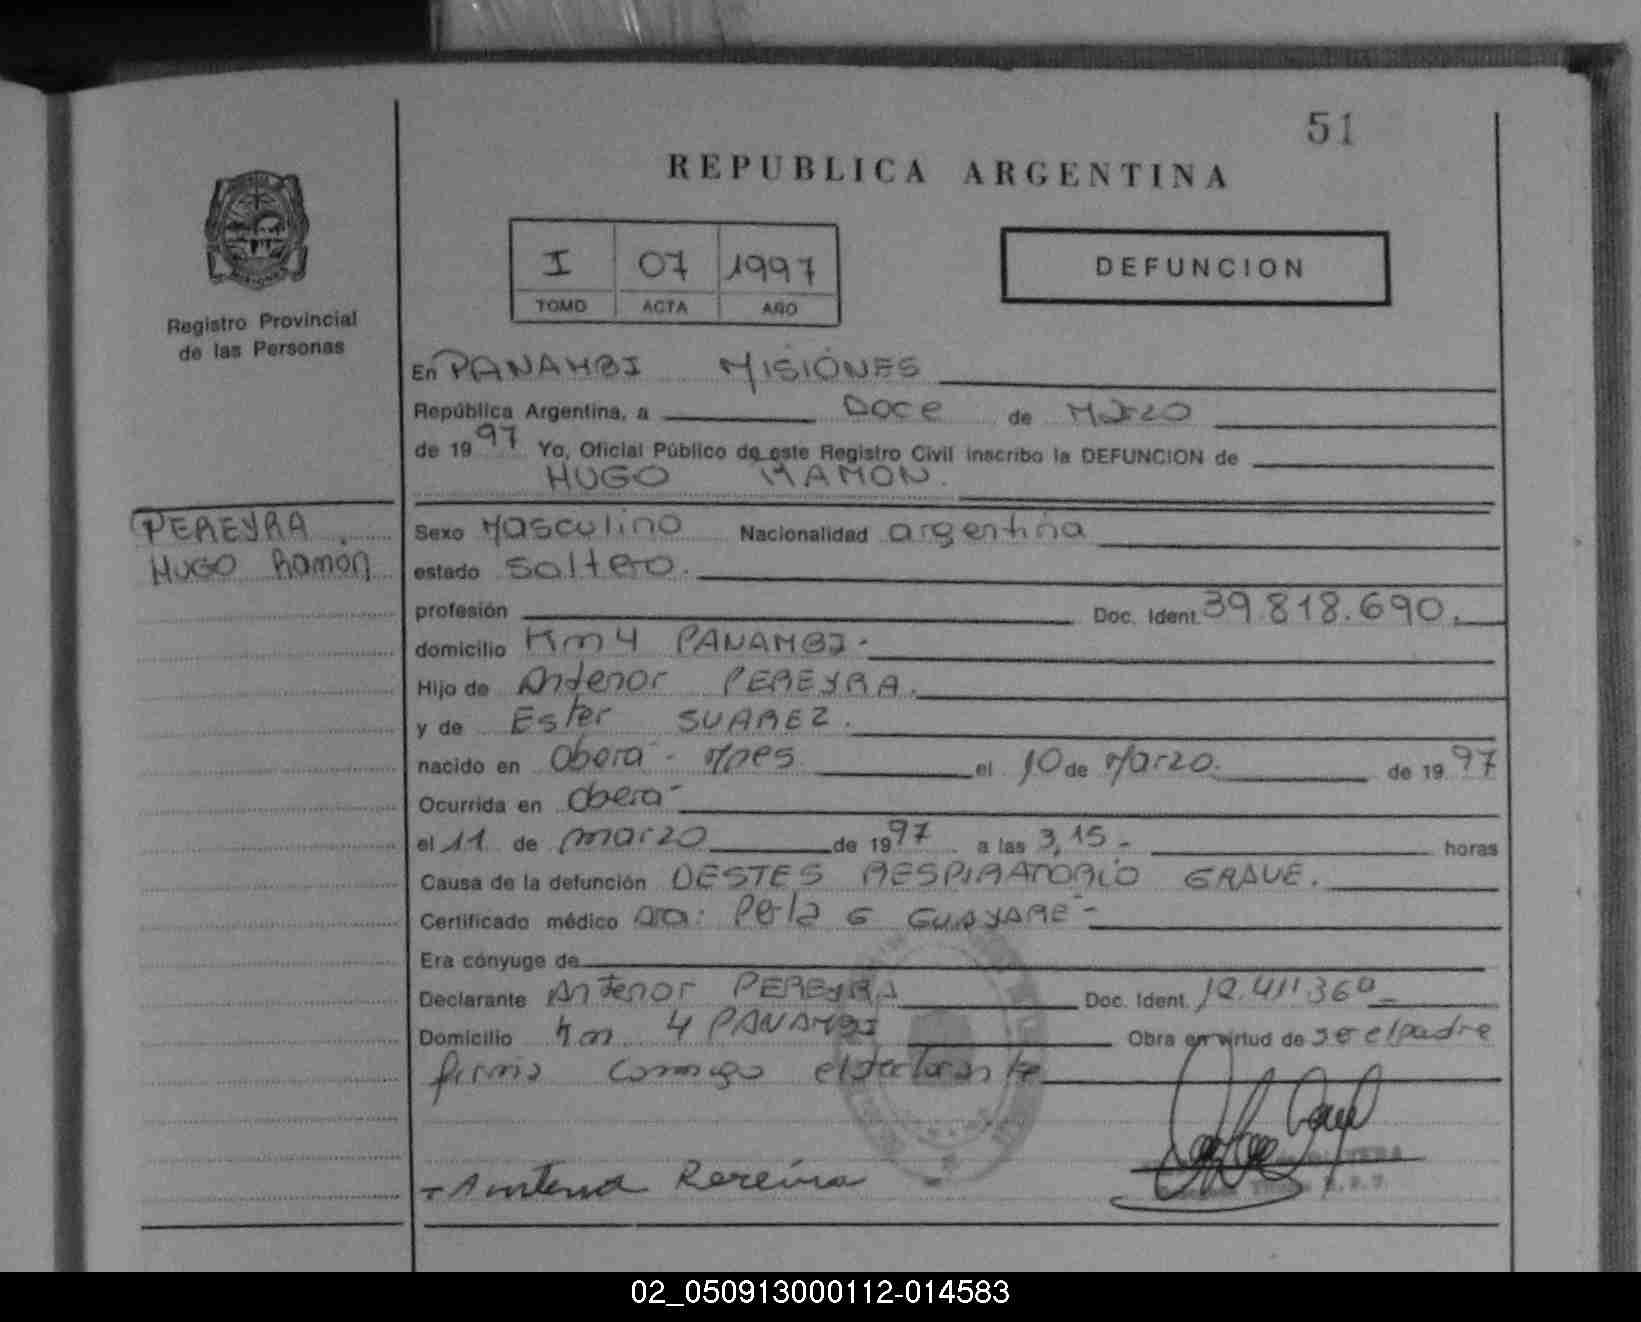 51
REPUBLICA ARGENTINA
I 07 1997
TOMO ACTA AÑO
DEFUNCION
Registro Provincial
de las Personas
En PANAMBI MISIONES
República Argentina, a Doce de Marzo
de 1997 Yo, Oficial Público de este Registro Civil inscribo la DEFUNCION de
HUGO RAMON.
PEREYRA
HUGO Ramón
Sexo Masculino Nacionalidad argentina
estado soltero.
profesión Doc. Ident. 39.818.690.
domicilio Km 4 PANAMBI.
Hijo de Antenor PEREYRA.
y de Ester SUAREZ.
nacido en Oberá - Mnes el 10 de Marzo. de 1997
Ocurrida en Oberá
el 11 de marzo de 1997 a las 3,15 - horas
Causa de la defunción DESTES RESPIRATORIO GRAVE.
Certificado médico Dra: Perla G GUAYARE -
Era cónyuge de
Declarante Antenor PEREYRA Doc. Ident. 12.411360
Domicilio Km 4 PANAMBI Obra en virtud de ser el padre
firma conmigo el declarante
Rereira
02_050913000112-014583